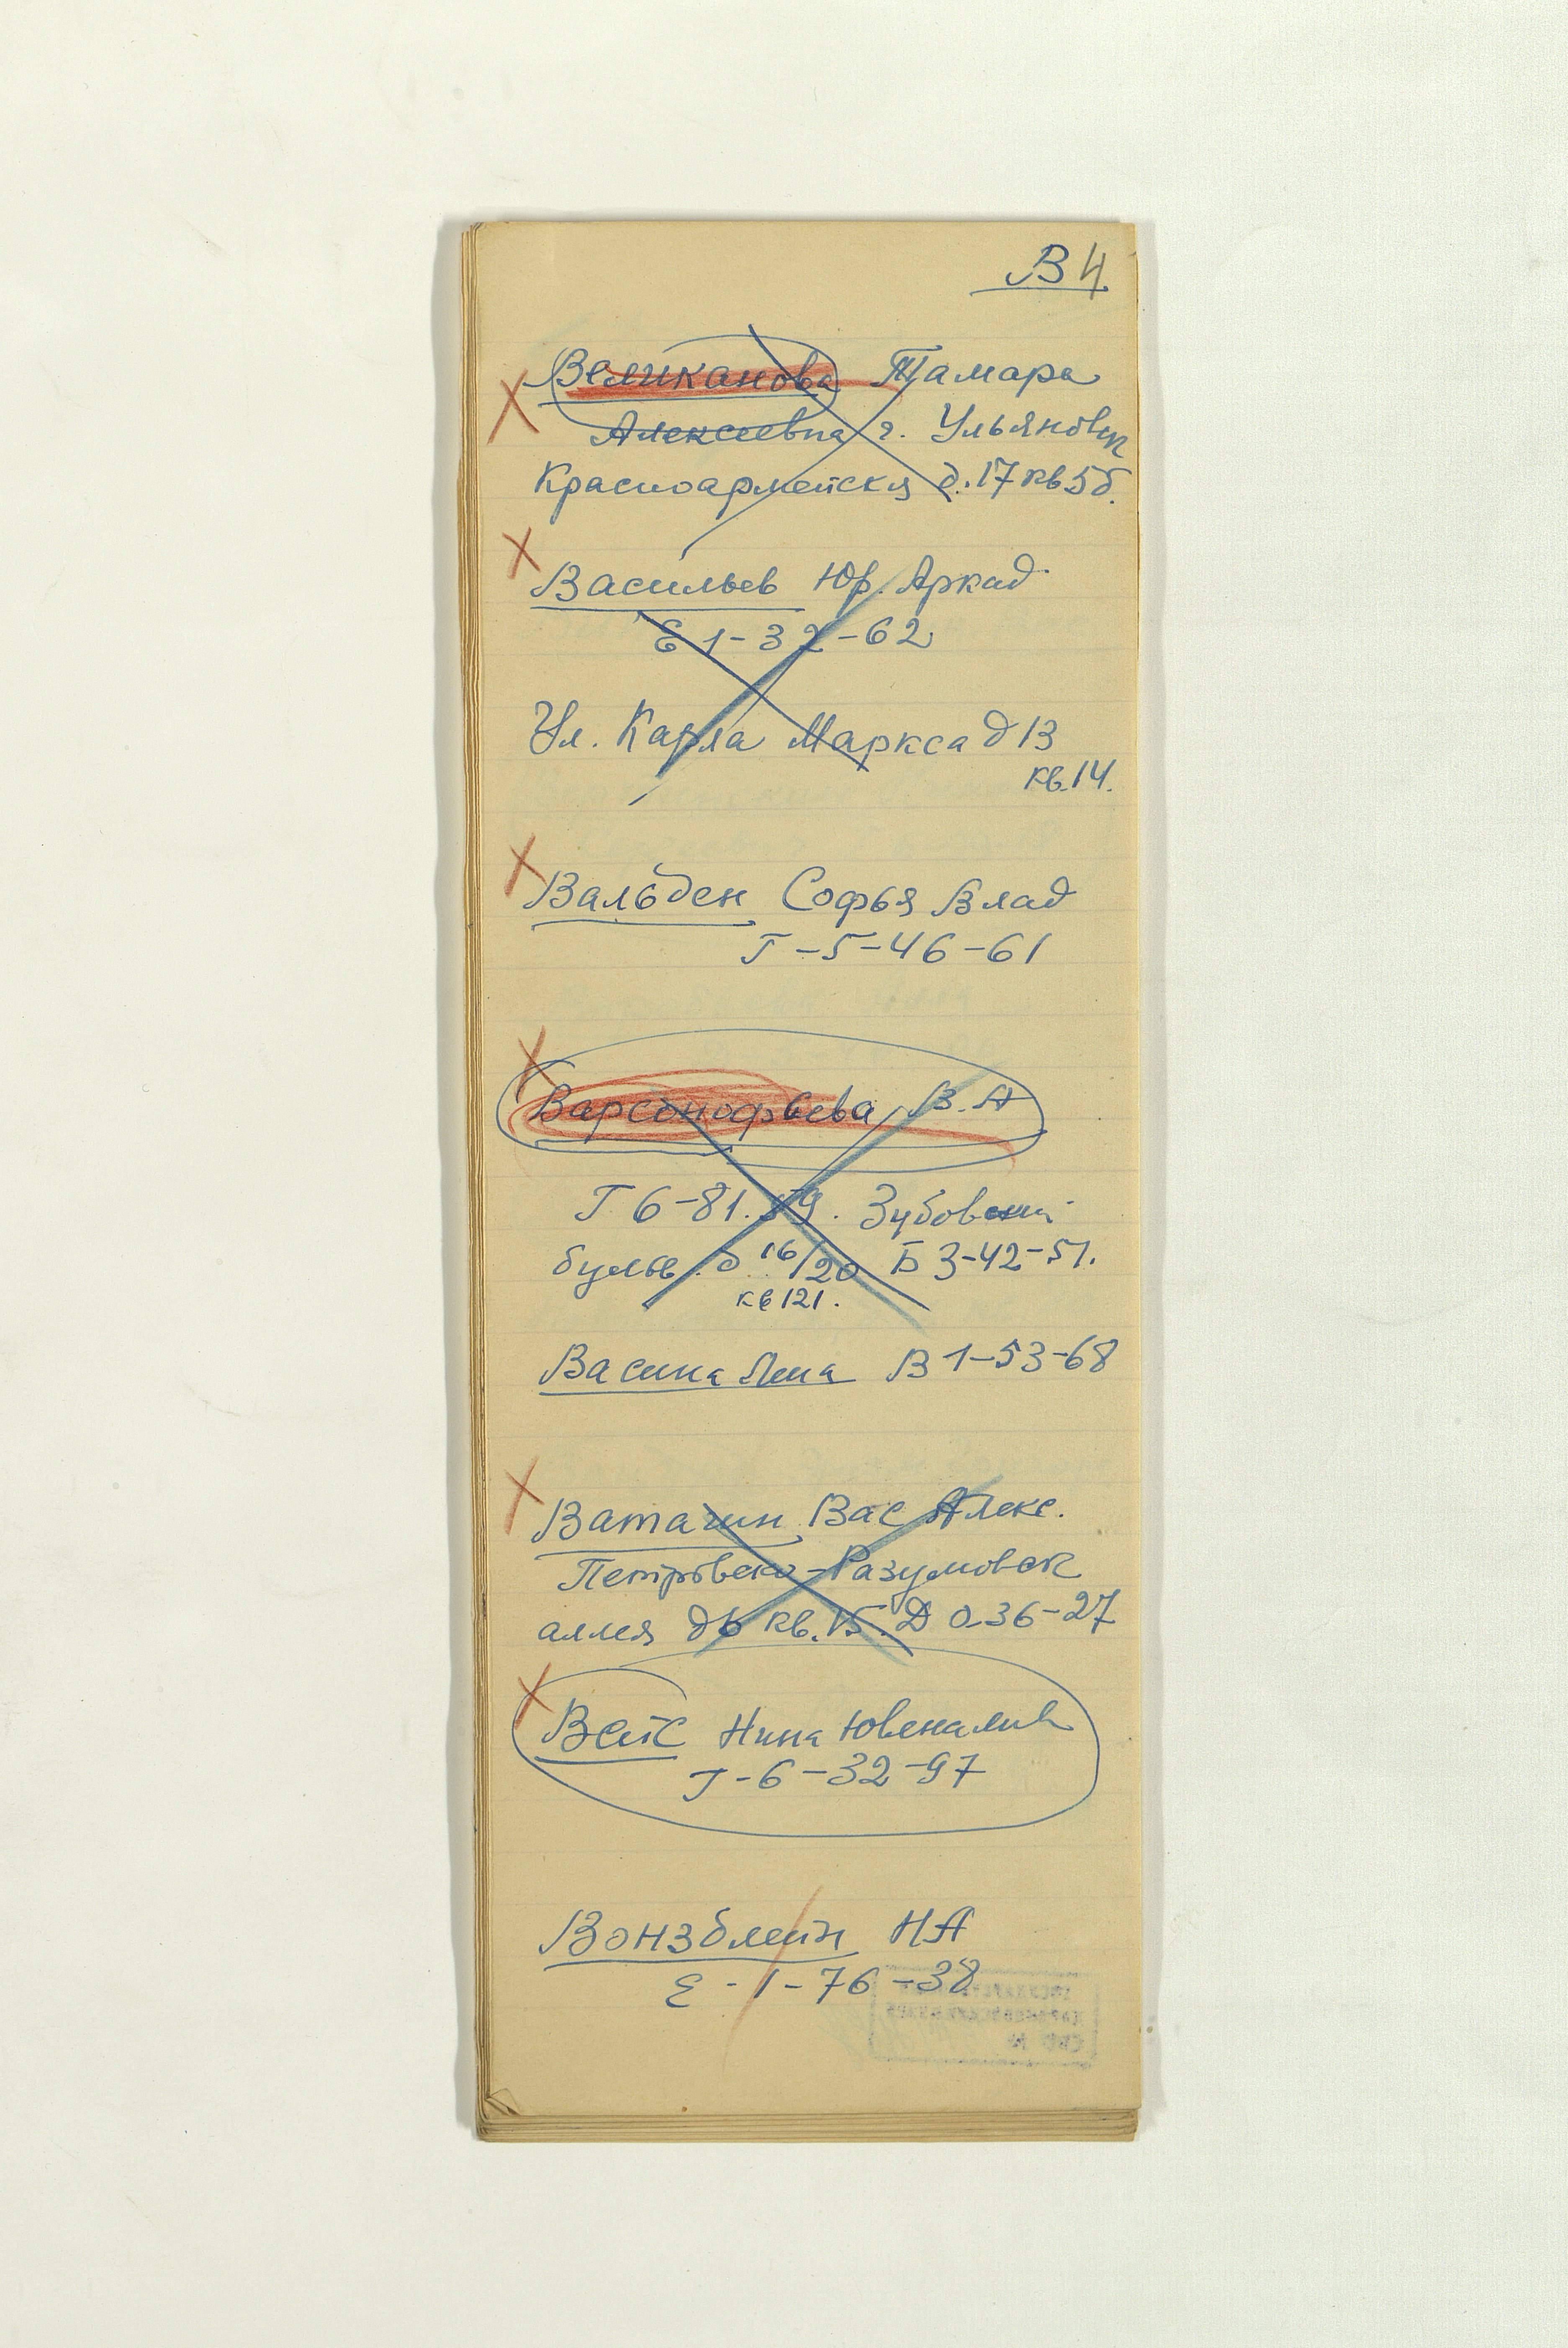 В 4
Великанова Тамара
Алексеевна г. Ульяновск
Красноармейская д. 17 кв 5б.
Васильев Юр. Аркад
Е 1-32-62
Ул. Карла Маркса д 13
кв. 14.
Вальден Софья Влад
Г-5-46-61
Варсонофьева В. А
Г 6-81.59. Зубовский
бульв. д 16/20 Б 3-42-51.
кв 121.
Васина Лина В 1-53-68
Ватагин Вас Алекс.
Петровско-Разумовск
аллея д 6 кв. 15. Д 0-36-27
Вейс Нина Ювеналив
Г-6-32-97
Вонзблейн НА
Е-1-76-38